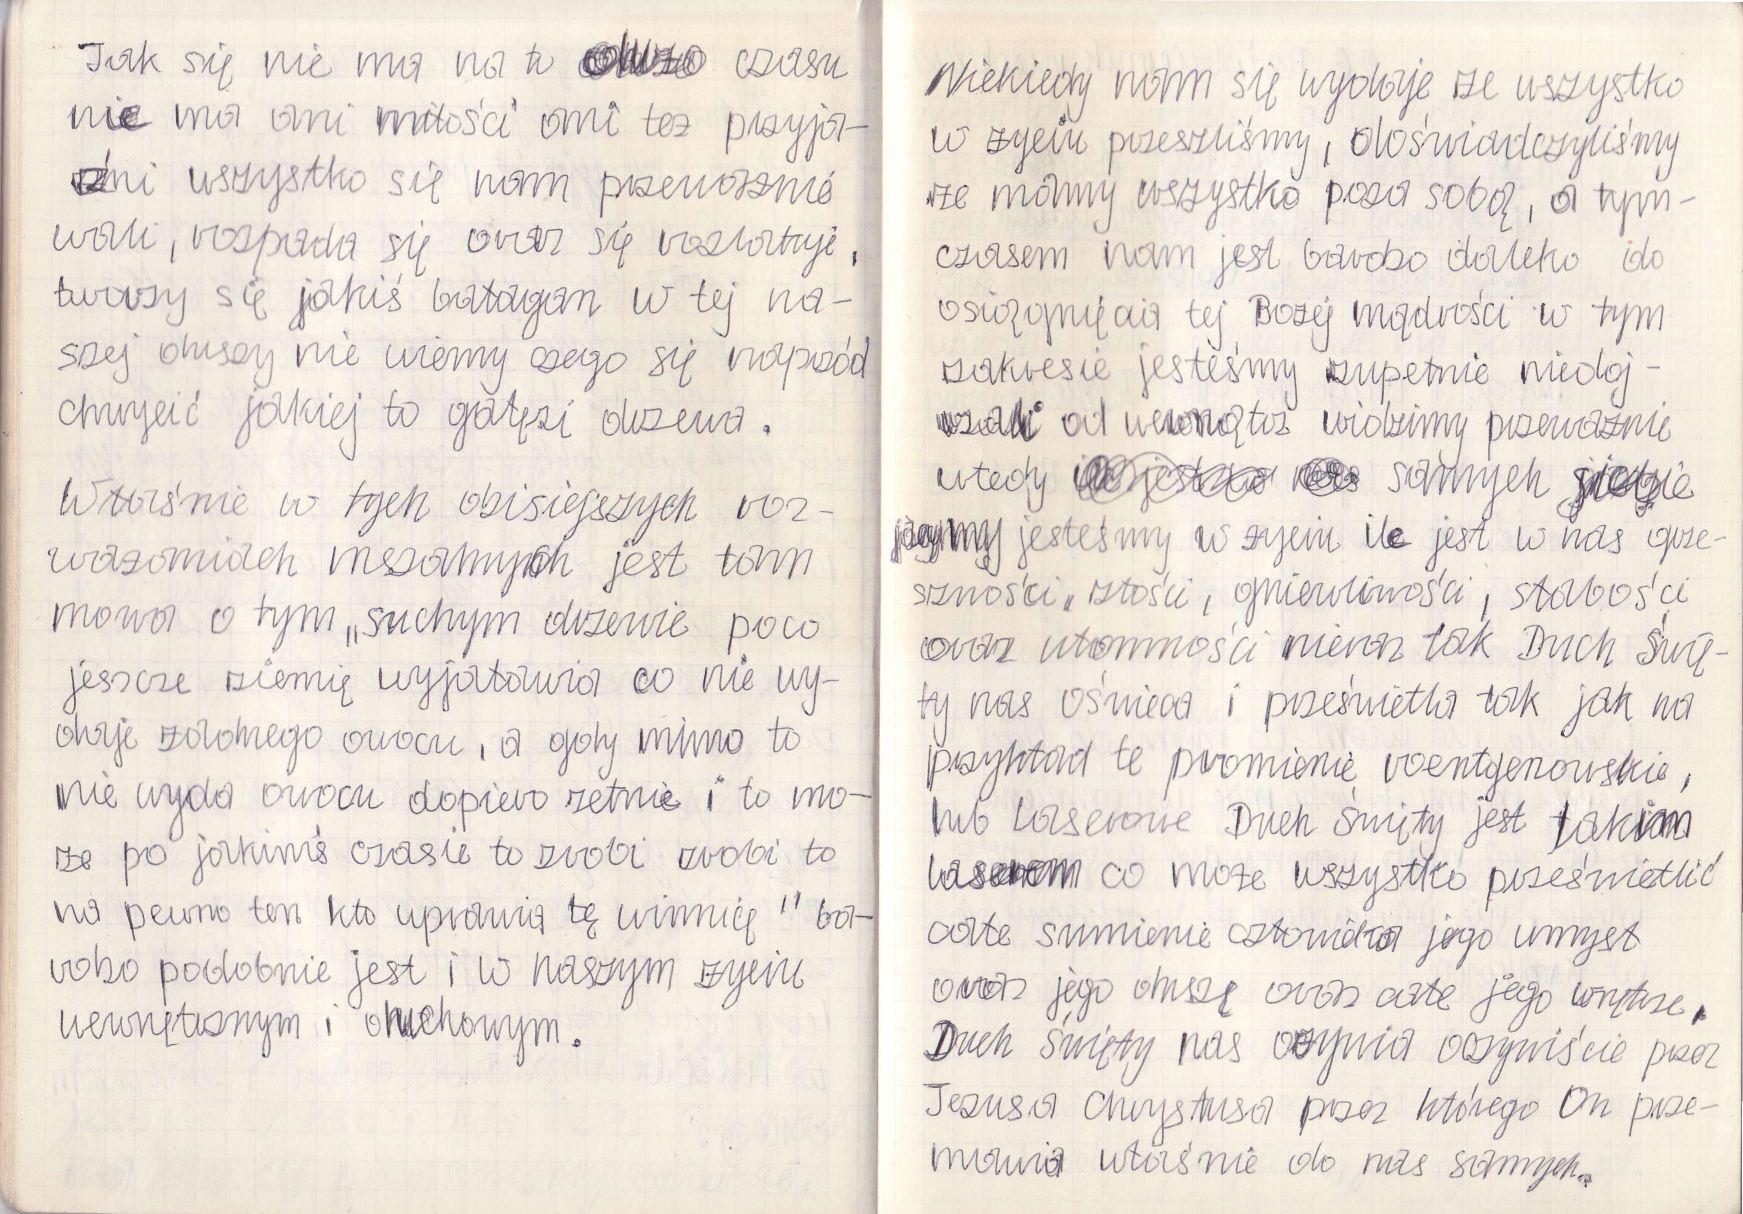 Jak się nie ma na to dużo czasu
nie ma ani miłości ani tez przyja-
źni wszystko się nam przeważnie
wali, rozpada się oraz się rozlatuje,
tworzy się jakiś bałagan w tej na-
szej duszy nie wiemy czego się napszód
chwycić jakiej to gałęzi drzewa.
Właśnie w tych dzisiejszych roz-
ważaniach mszalnych jest tam
mowa o tym „suchym drzewie poco
jeszcze ziemię wyjaławia co nie wy-
daje żadnego owocu, a gdy mimo to
nie wyda owocu dopiero zetnie i to mo-
że po jakimś czasie to zrobi zrobi to
na pewno ten kto uprawia tę winnicę" ba-
rdzo podobnie jest i w naszym zyciu
wewnętrznym i duchowym.
Niekiedy nam się wydaje ze wszystko
w zyciu przeszliśmy, doświadczyliśmy
ze mamy wszystko poza sobą, a tym-
czasem nam jest bardzo daleko do
osiągnięcia tej Bożej mądrości w tym
zakresie jesteśmy zupełnie niedoj-
rzali od wewnątrz widzimy przeważnie
wtedy samych
jesteśmy w zyciu ile jest w nas grze-
szności, złości, gniewliwości, słabości
oraz ułomności nieraz tak Duch Świę-
ty nas oświeca i prześwietla tak jak na
przykład te promienie roentgenowskie,
lub laserowe Duch Święty jest takim
laserem co może wszystko prześwietlić
całe sumienie człowieka jego umysł
oraz jego duszę oraz całe jego wnętrze.
Duch Święty nas ożywia oczywiście przez
Jezusa Chrystusa przez którego On prze-
mawia właśnie do nas samych.